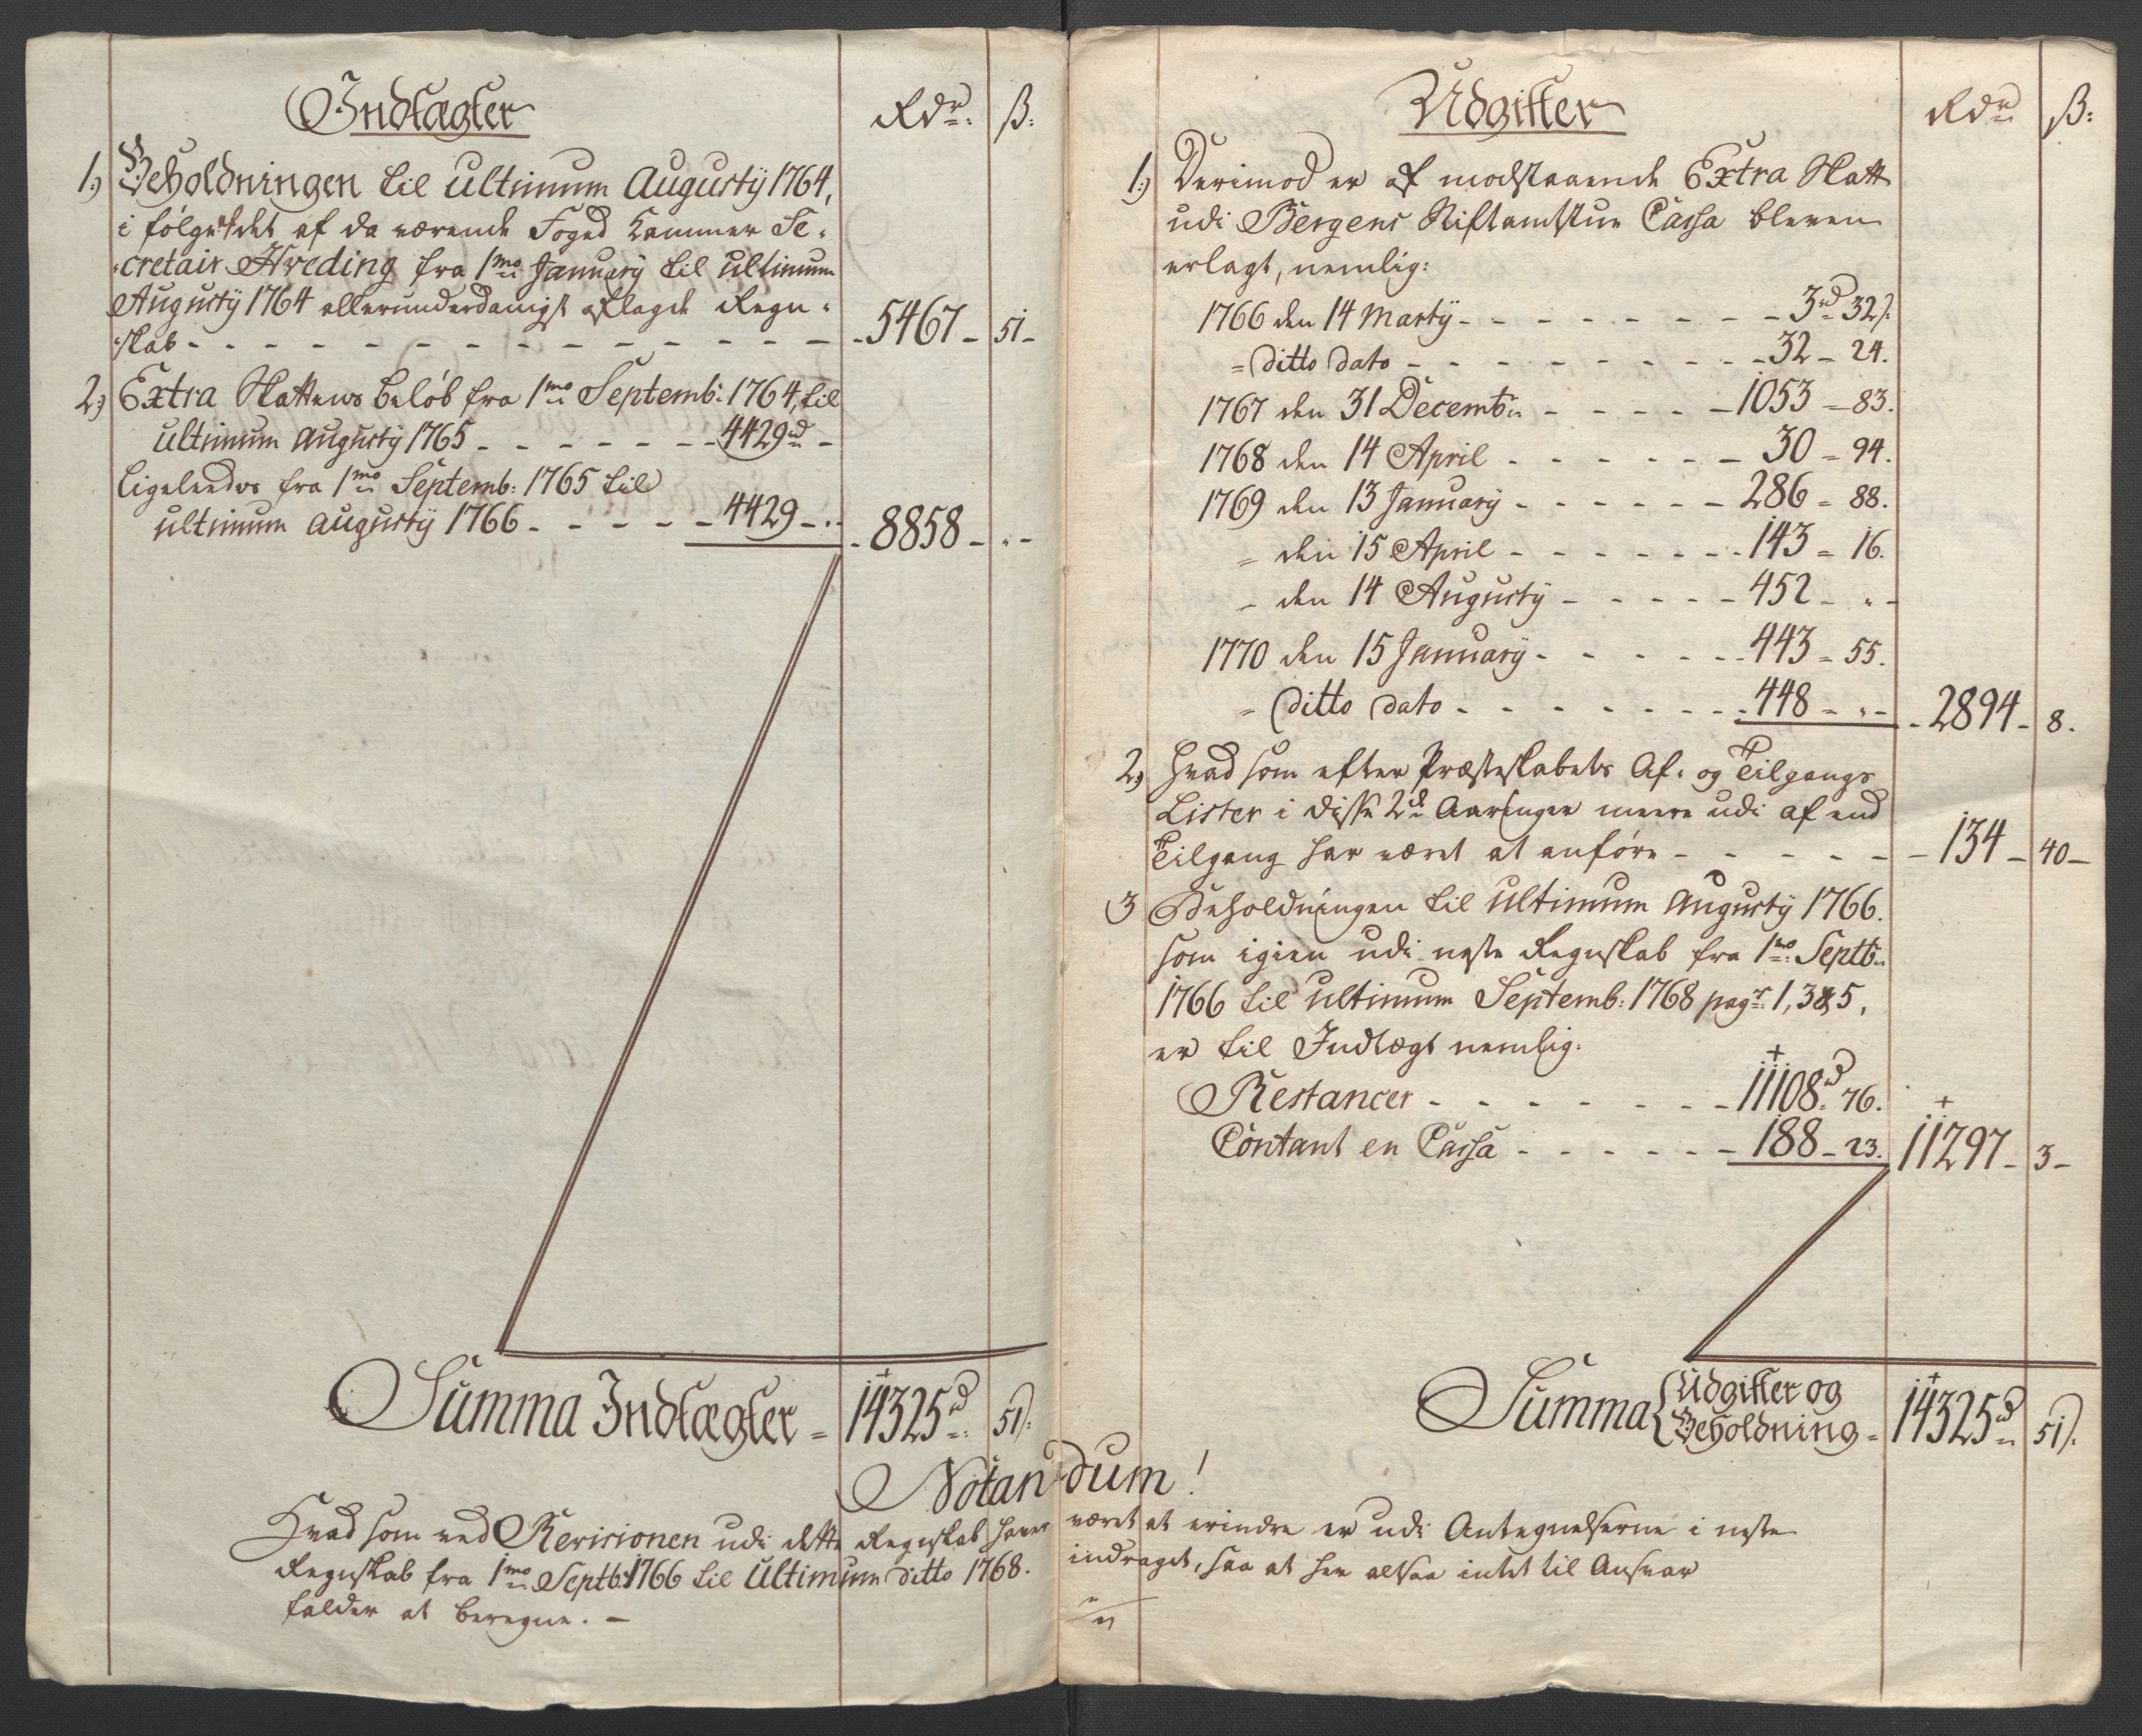 Indtægter
Rdr: ß:
1) Beholdningen til ultimum Augusty 1764,
i følge det af da værende Foged Kammer Se-
cretair Hveding fra 1mo January til ultimum
Augusty 1764 allerunderdanigst aflagde Regn-
skab - 5467 - 51 -
2) Extra Skattens Beløb fra 1mo Septemb: 1764, til
ultimum Augusty 1765 - 4429rd -
Ligeleedes fra 1mo Septemb: 1765 til
ultimum Augusty 1766 - 4429 - " - 8858 - " -
Summa Indtægter = 14325rd 51ß:
Udgifter
Rdr ß:
1) Derimod er af modstaaende Extra Skatt
udi Bergens Stiftamtstue Cassa bleven
erlagt, nemlig:
1766 den 14 Marty - 3rd 32ß
= ditto dato - 32 - 24.
1767 den 31 Decembr - 1053 - 83.
1768 den 14 April - 30 - 94.
1769 den 13 January - 286 - 88.
= den 15 April - 143 = 16.
- den 14 Augusty - 452 - " -
1770 den 15 January - 443 = 55.
= ditto dato - 448 - " - 2894 - 8.
2) Hvad som efter Præsteskabets Af- og Tilgangs
Lister i disse 2de Aaringer meere udi af end
Tilgang har været at anføre - 134 - 40 -
3 Beholdningen til ultimum Augusty 1766.
som igien udi neste Regnskab fra 1mo: Septbr
1766 til ultimum Septemb: 1768 pagr: 1, 3 & 5,
er til Indtægt nemlig:
Restancer - 11108rd 76.
Contant en Cassa - 188 - 23. 11297 - 3 -
Summa { Udgifter og
Beholdning = 14325rd 51ß.
Notandum!
Hvad som ved Revisionen udi dette Regnskab haver været at erindre er udi Antegnelserne i neste
Regnskab fra 1mo Septb: 1766 til Ultimum ditto 1768. indraget, saa at her altsaa intet til Ansvar
falder at beregne. -